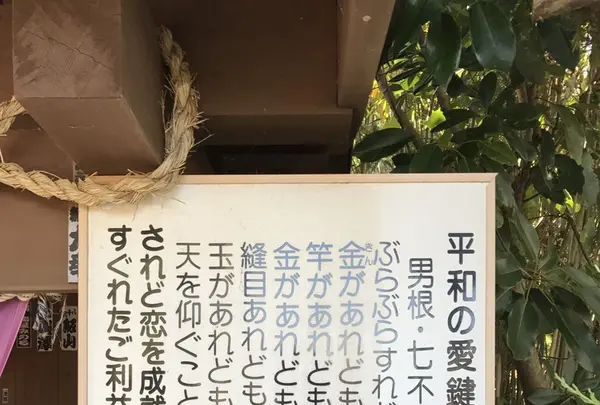 平和の愛鍵
男根・七不
ぶらぶらすれど
金があれども
きん
竿があれども
金があれども
縫目あれども
玉があれども
天を仰ぐこと
されど恋を成就
すぐれたご利益